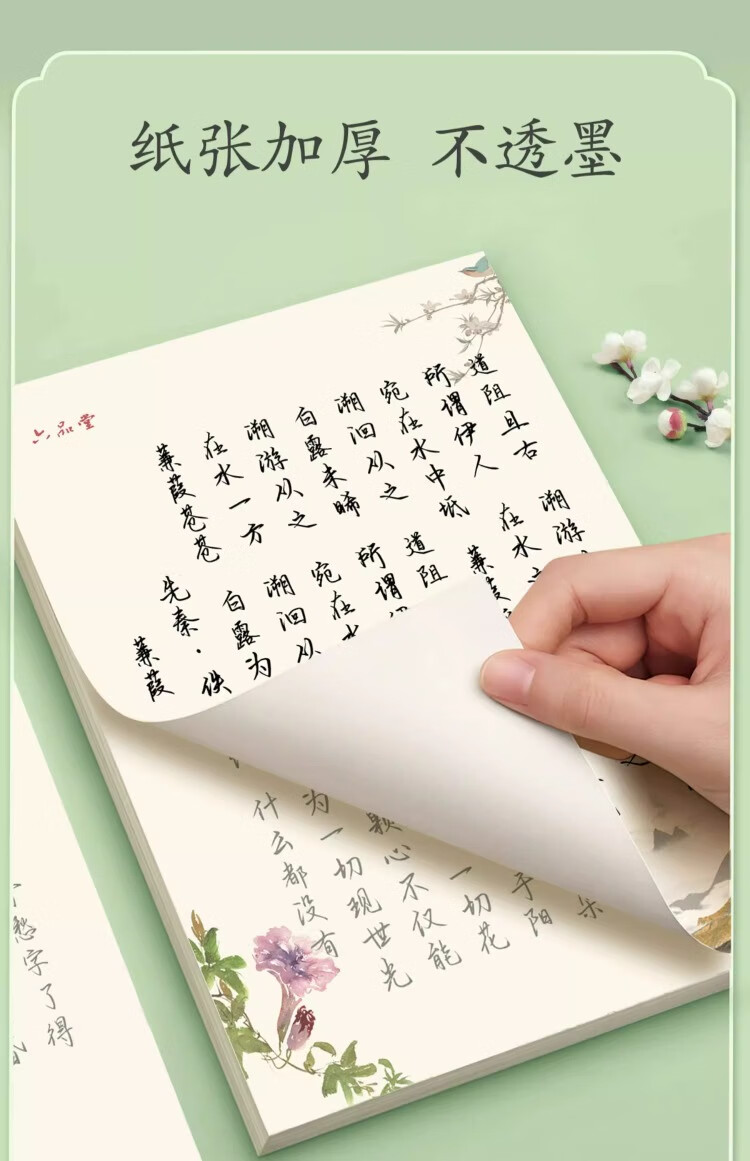 纸张加厚 不透墨
六品堂
蒹葭
先秦·佚
蒹葭苍苍 白露为
在水一方 溯洄从
溯游从之 宛在水
白露未晞 所谓
溯洄从之 道阻
宛在水中坻 蒹葭
所谓伊人 在水
道阻且右 溯游
什么都没有
为一切现世光
颗心不仅能
一切花
于阳
朵
愁字了得